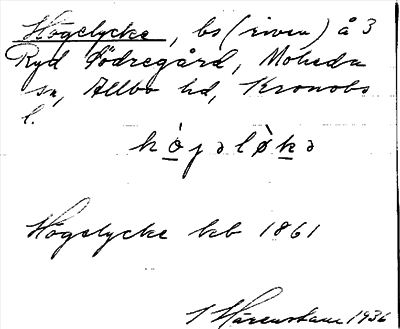 Högelycke, bs (riven) å 3
Ryd Södregård, Moheda
sn, Allbo hd, Kronobs
l.
hòjəlø̀kə
Högelycke kb 1861
1936